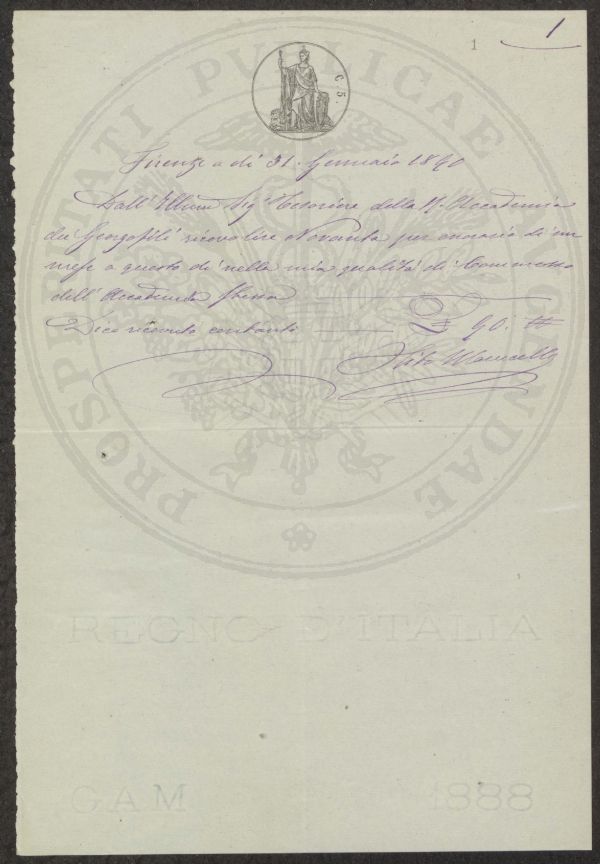 1
1
C. 5.
Firenze a dì 31. Gennaio 1890
Dall' Illmo Sig Tesoriere della R. Accademia
dei Georgofili ricevo lire Novanta per onorario di un
mese a questo dì nella mia qualità di Commesso
dell' Accademia stessa
Dico ricevuto contanti £ 90. "
PROSPERITATI PUBLICAE AUGENDAE
REGNO D'ITALIA
GAM 1888